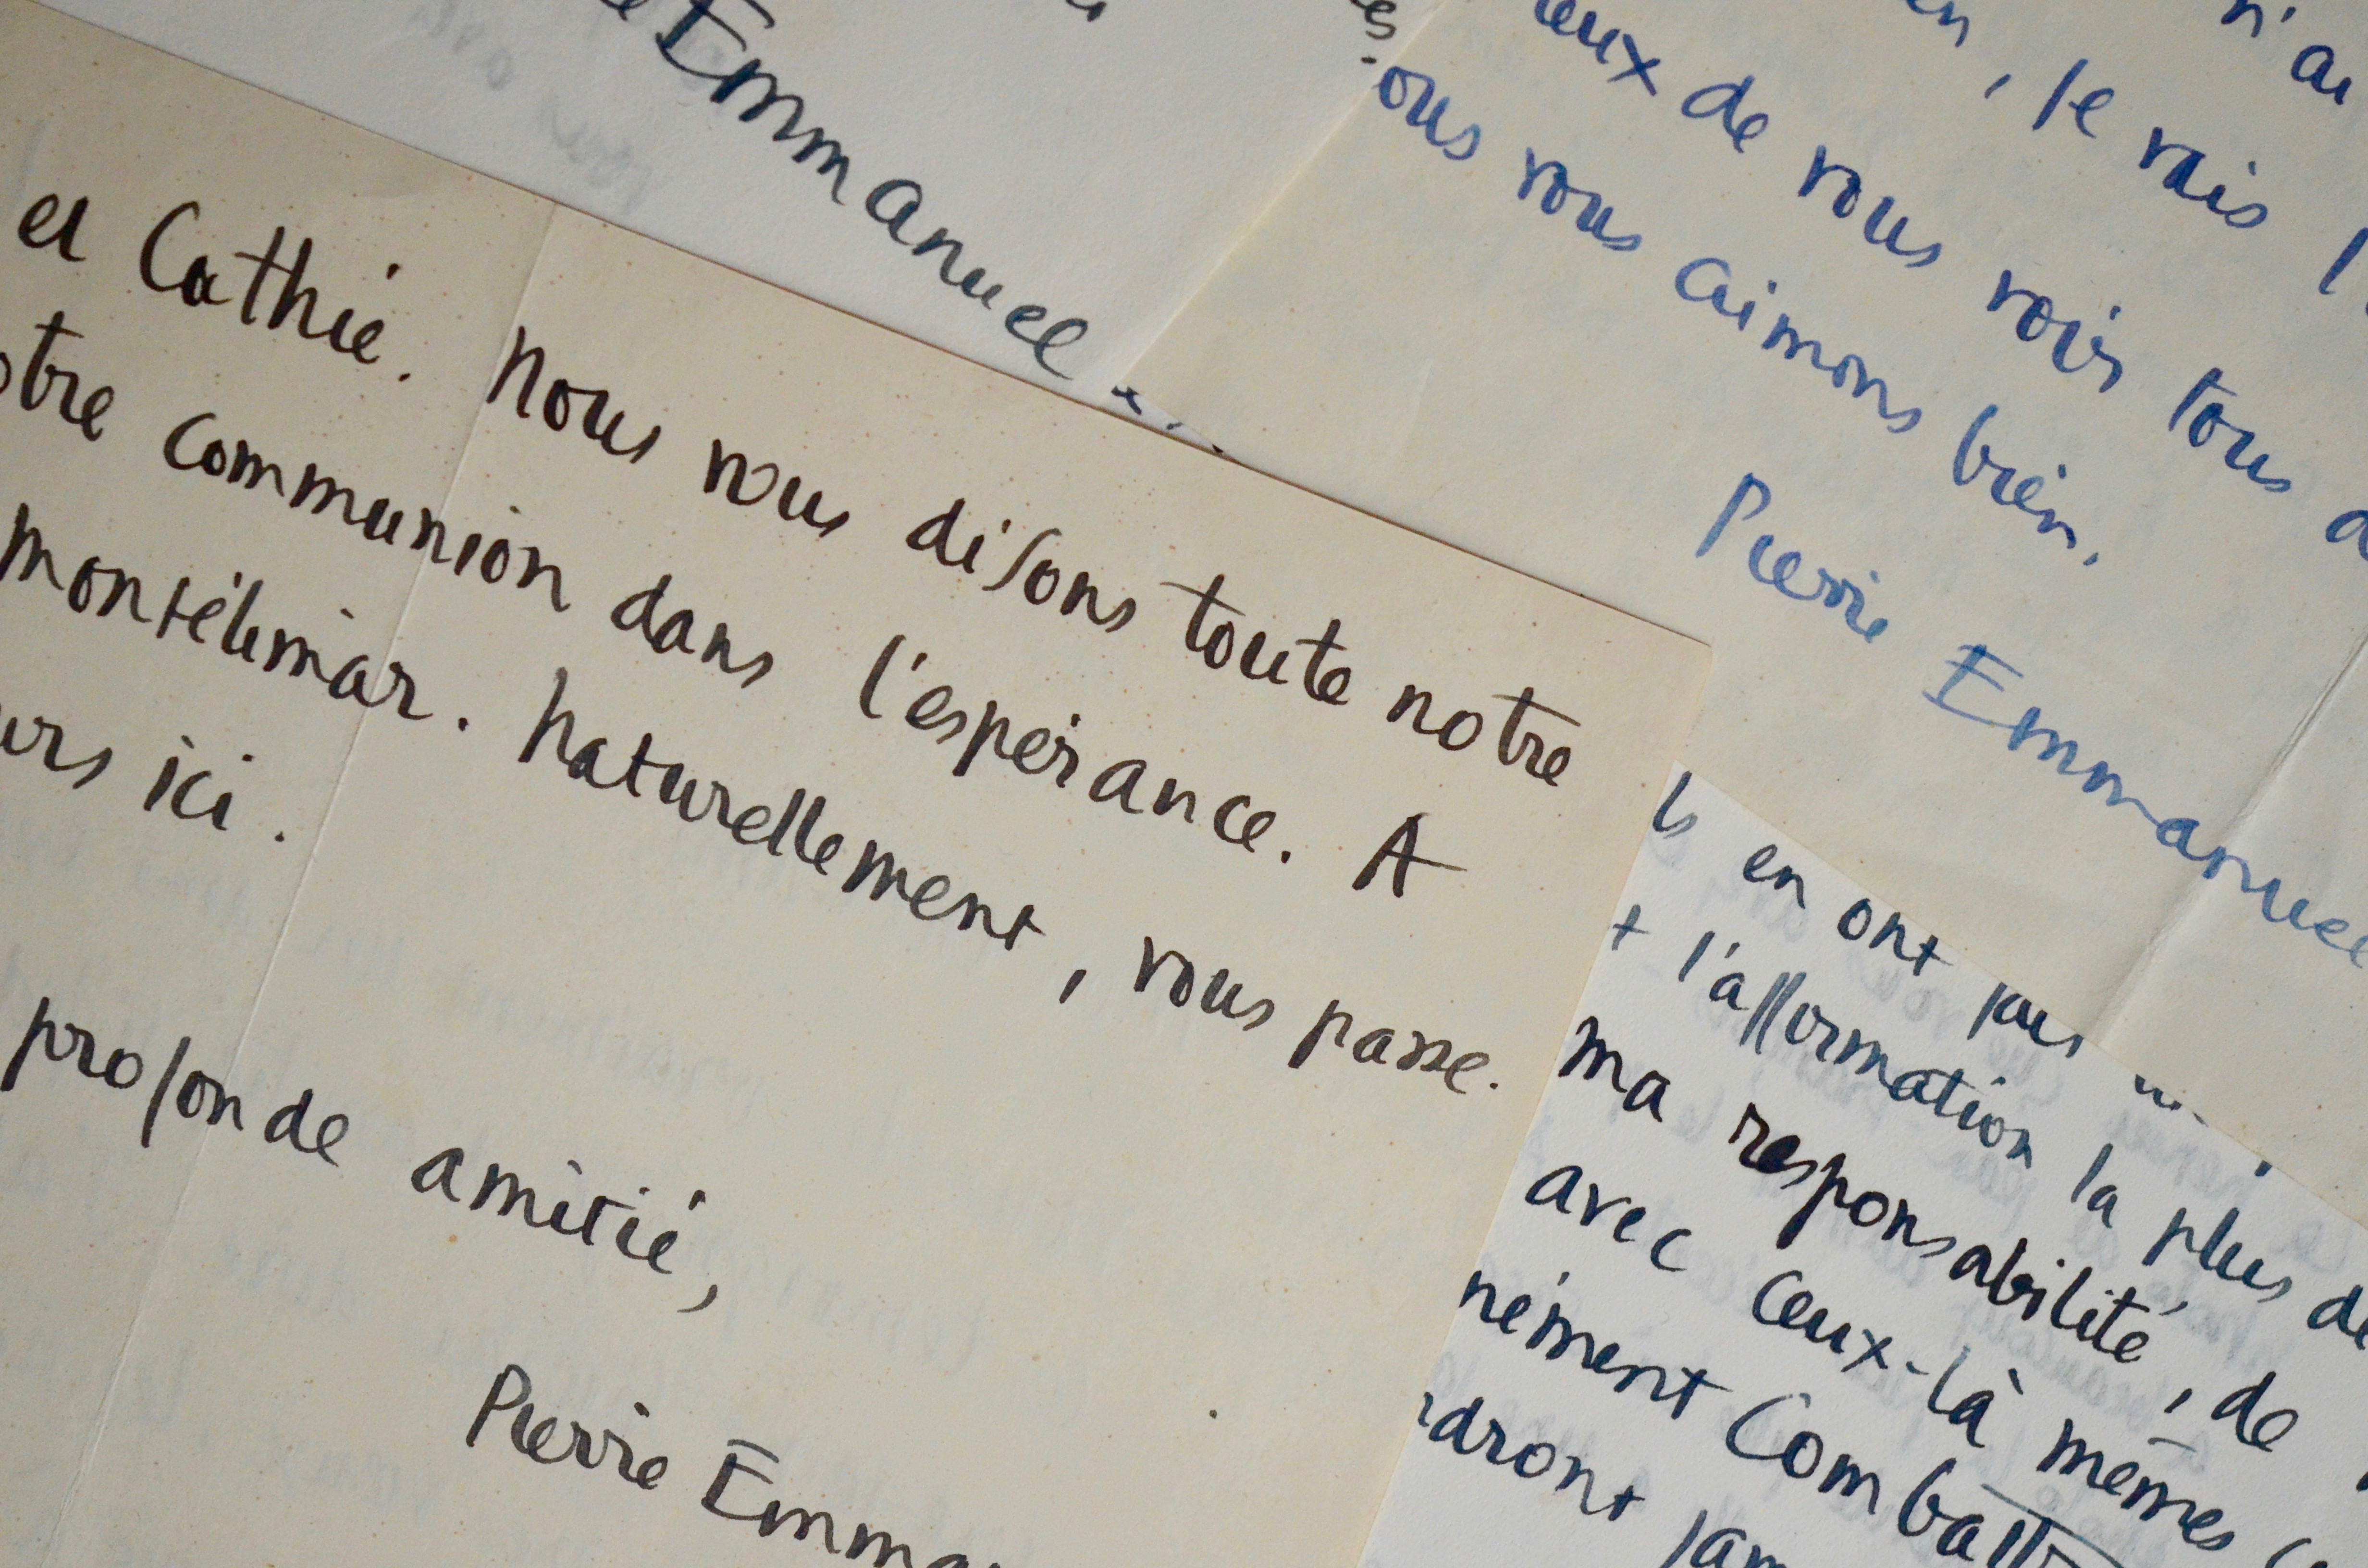 Emmanuel
n'ai
, je vais
eux de vous voir tous
ous vous aimons bien.
Pierre Emmanuel
et Cathie. Nous vous disons toute notre
otre communion dans l'espérance. A
Montélimar. Naturellement, vous passe.
urs ici.
profonde amitié,
Pierre Emma
en ont pas
t l'affirmation la plus de
ma responsabilité, de
avec ceux-là mêmes
nément Combatt
dront jam